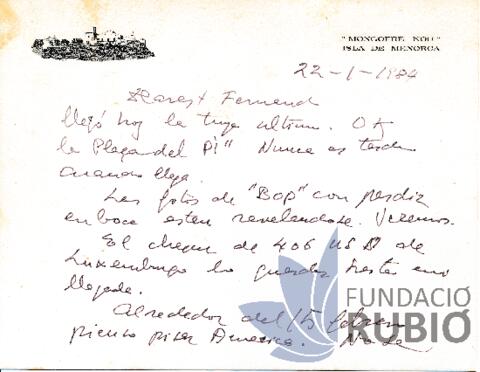 "MONGOFRE NOU"
ISLA DE MENORCA
22-1-1984
Dearest Fernand
llegó hoy la tuya ultima. OK
la Plaça del Pi" Nunca es tarde
cuando llega.
Las fotos de "Bop" con perdiz
en boca estan revelandose. Veremos.
El cheque de 406 US $ de
Luxemburgo lo guardas hasta mi
llegada.
Alrededor del 15 febrero
pienso pisar America.
FUNDACIÓ
RUBIÓ